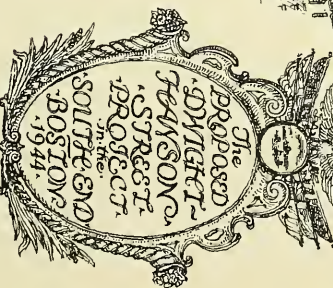 The
PROPOSED
DWIGHT-
HANSON
STREET
PROJECT
in the
SOUTH END
BOSTON
1944